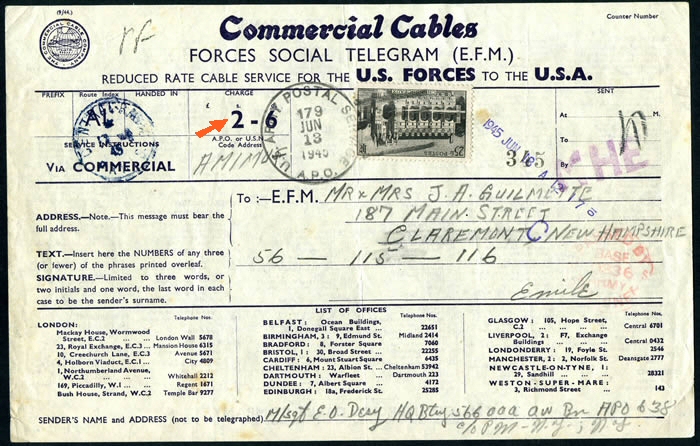 (9/44)
Counter Number
Commercial Cables
FORCES SOCIAL TELEGRAM (E.F.M.)
REDUCED RATE CABLE SERVICE FOR THE U.S. FORCES TO THE U.S.A.
PREFIX Route Index HANDED IN CHARGE SENT
£ s.
2 - 6
At
A.P.O. or U.S.N. Code Address
To
SERVICE INSTRUCTIONS
By
VIA COMMERCIAL
U.S. ARMY POSTAL
179
JUN
13
1945
A.P.O.
POSTES
1945 JUN
345
THE
To :—E.F.M. MR & MRS J. A. GUILMETTE
187 MAIN STREET
CLAREMONT NEW HAMPSHIRE
ADDRESS.—Note.—This message must bear the full address.
TEXT.—Insert here the NUMBERS of any three (or fewer) of the phrases printed overleaf.
56 — 115 — 116
SIGNATURE.—Limited to three words, or two initials and one word, the last word in each case to be the sender's surname.
Emile
LIST OF OFFICES
LONDON: Telephone Nos.
Mackay House, Wormwood Street, E.C.2 ... London Wall 5678
23, Royal Exchange, E.C.3 Mansion House 6315
10, Creechurch Lane, E.C.3 Avenue 5671
4, Holborn Viaduct, E.C.1 City 4809
1, Northumberland Avenue, W.C.2 Whitehall 2212
169, Piccadilly, W.1 Regent 1671
Bush House, Strand, W.C.2 Temple Bar 9277
Telephone Nos.
BELFAST: Ocean Buildings, 1, Donegall Square East 22651
BIRMINGHAM, 3: 9, Edmund St. Midland 2414
BRADFORD: 8, Forster Square 7060
BRISTOL, 1: 30, Broad Street 22255
CARDIFF: 6, Mount Stuart Square 6435
CHELTENHAM: 23, Albion St. Cheltenham 53942
DARTMOUTH: Warfleet Dartmouth 223
DUNDEE: 7, Albert Square 4172
EDINBURGH: 18a, Frederick St. 25285
Telephone Nos.
GLASGOW: 105, Hope Street, C.2 Central 6701
LIVERPOOL, 2: F7, Exchange Buildings Central 0432
LONDONDERRY: 19, Foyle St. 2546
MANCHESTER, 2: 2, Norfolk St. Deansgate 2777
NEWCASTLE-ON-TYNE, 1: 29, Sandhill 28321
WESTON-SUPER-MARE: 3, Richmond Street 143
SENDER'S NAME and ADDRESS (not to be telegraphed) M/sgt E.O. HQ Btry 566 AAA AW Bn APO 638
c/o PM - N.Y., N.Y.